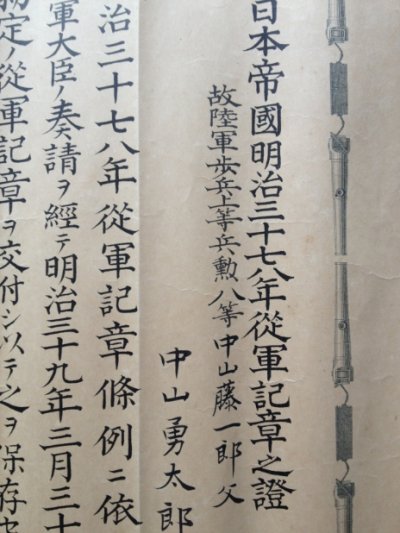 日本帝國明治三十七八年從軍記章之證
故陸軍歩兵上等兵勲八等中山藤一郎父
中山勇太郎
治三十七八年從軍記章條例ニ依
軍大臣ノ奏請ヲ經テ明治三十九年三月三十
定ノ從軍記章ヲ交付シ以テ之ヲ保存セ